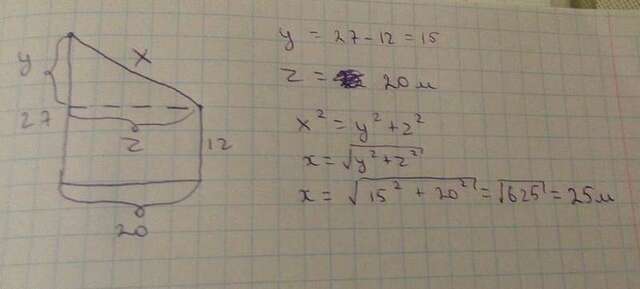 y
x
27
z
12
20
y = 27 - 12 = 15
z = 20 м
x² = y² + z²
x = √y² + z²
x = √15² + 20² = √625 = 25 м